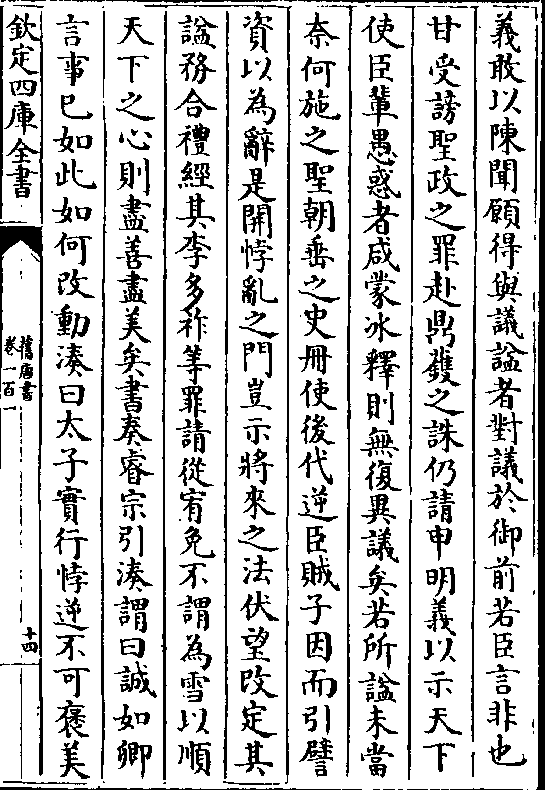 義敢以陳聞願得與議諡者對議於御前若臣言非也
甘受謗聖政之罪赴鼎鑊之誅仍請申明義以示天下
使臣輩愚惑者咸蒙冰釋則無復異議矣若所諡未當
奈何施之聖朝垂之史冊使後代逆臣賊子因而引譬
資以為辭是開悖亂之門豈示將來之法伏望改定其
諡務合禮經其李多祚等罪請從宥免不謂為雪以順
天下之心則盡善盡美矣書奏睿宗引湊謂曰誠如卿
言事已如此如何改動湊曰太子實行悖逆不可褒美
欽定四庫全書
舊唐書
卷一百一
十四